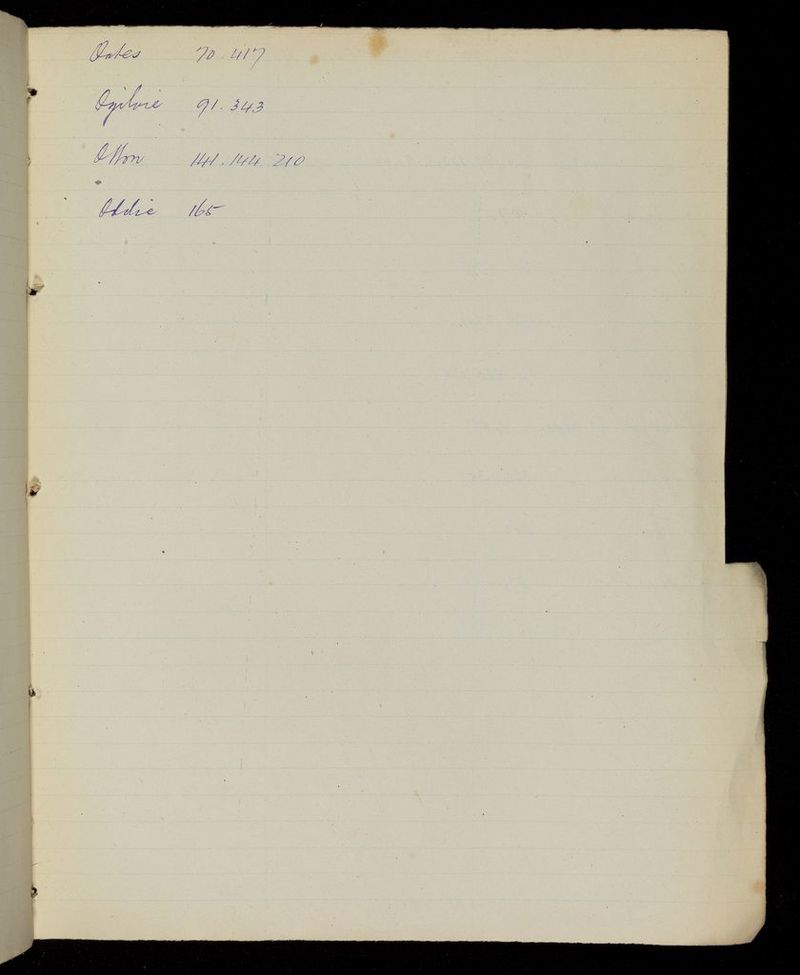 Oates 70. 417
Ogilvie 91. 343
Otton 141. 144 210
Oddie 165